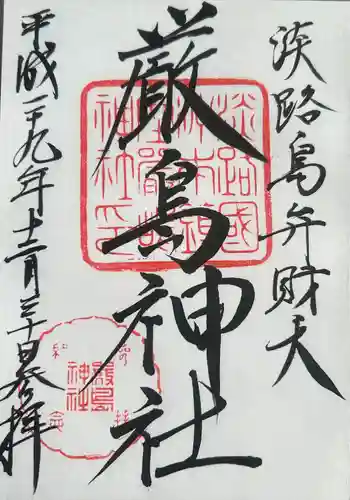 淡路島弁財天
厳島神社
平成二十九年十二月三十日参拝
厳島
神社